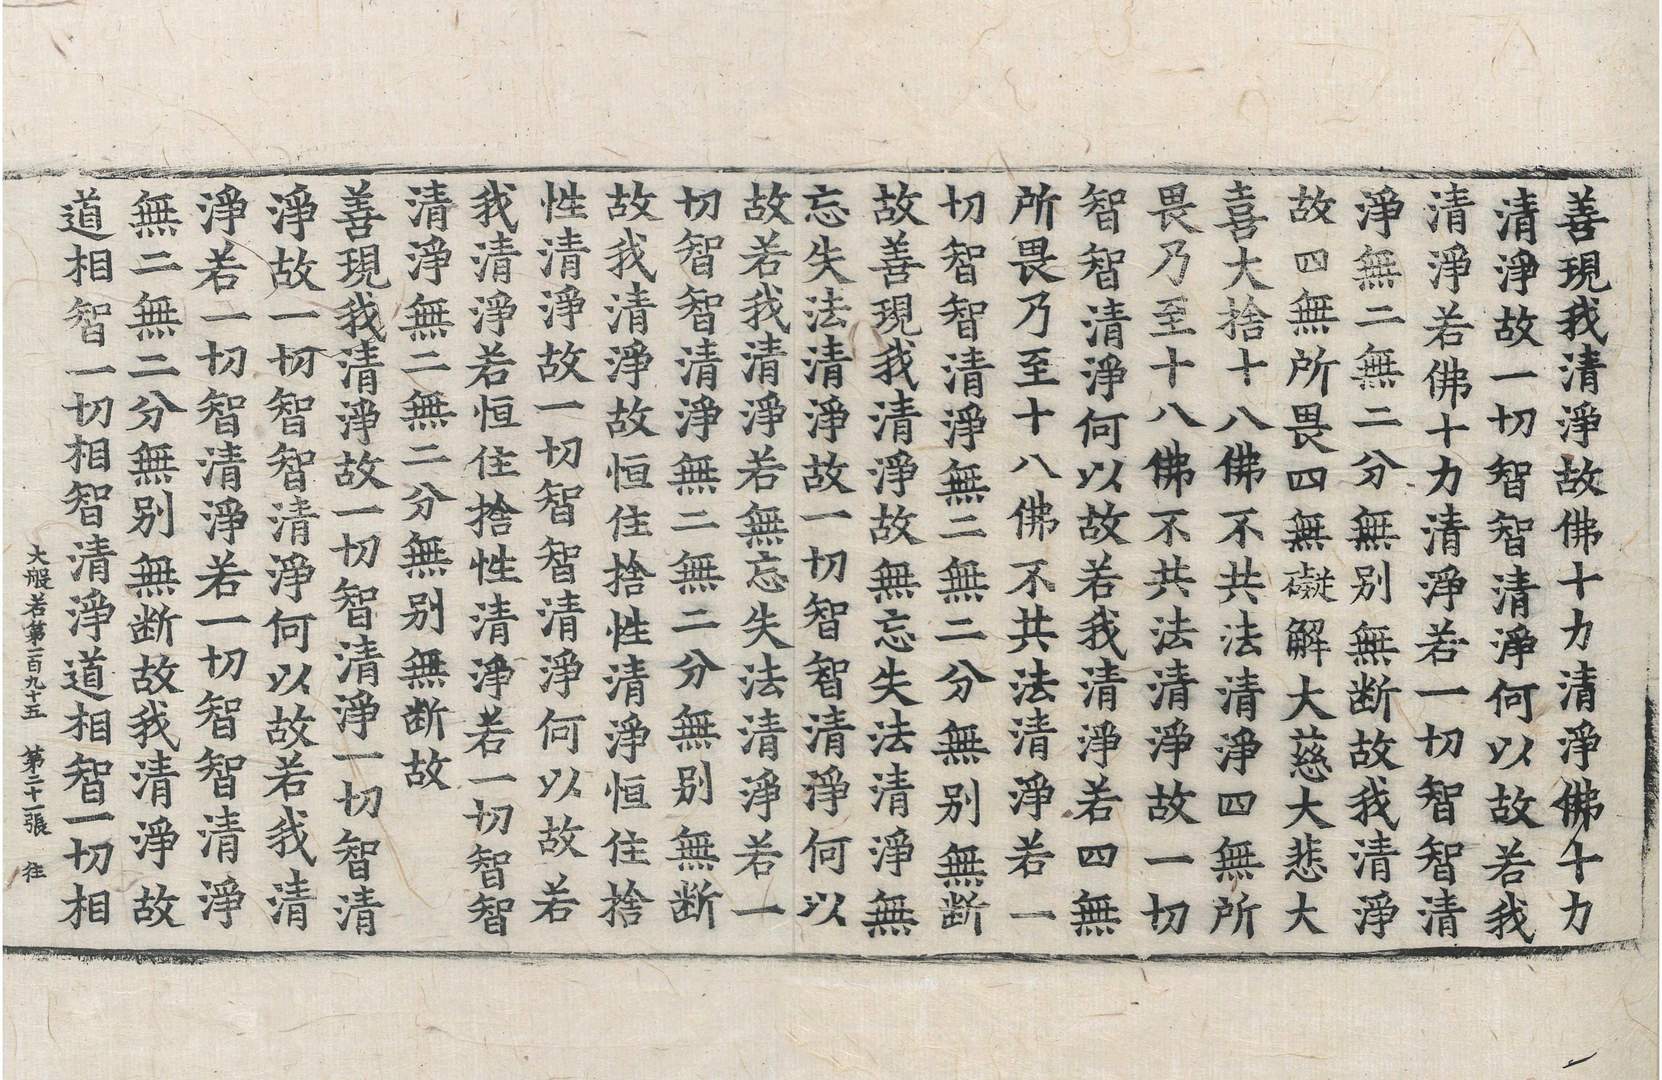 善現我清淨故佛十力清淨佛十力
清淨故一切智智清淨何以故若我
清淨若佛十力清淨若一切智智清
淨無二無二分無別無断故我清淨
故四無所畏四無礙解大慈大悲大
喜大捨十八佛不共法清淨四無所
畏乃至十八佛不共法清淨故一切
智智清淨何以故若我清淨若四無
所畏乃至十八佛不共法清淨若一
切智智清淨無二無二分無別無断
故善現我清淨故無忘失法清淨無
忘失法清淨故一切智智清淨何以
故若我清淨若無忘失法清淨若一
切智智清淨無二無二分無別無断
故我清淨故恒住捨性清淨恒住捨
性清淨故一切智智清淨何以故若
我清淨若恒住捨性清淨若一切智智
清淨無二無二分無別無断故
善現我清淨故一切智清淨一切智清
淨故一切智智清淨何以故若我清
淨若一切智清淨若一切智智清淨
無二無二分無別無断故我清淨故
大般若第一百九十五 第二十一張 往
道相智一切相智清淨道相智一切相